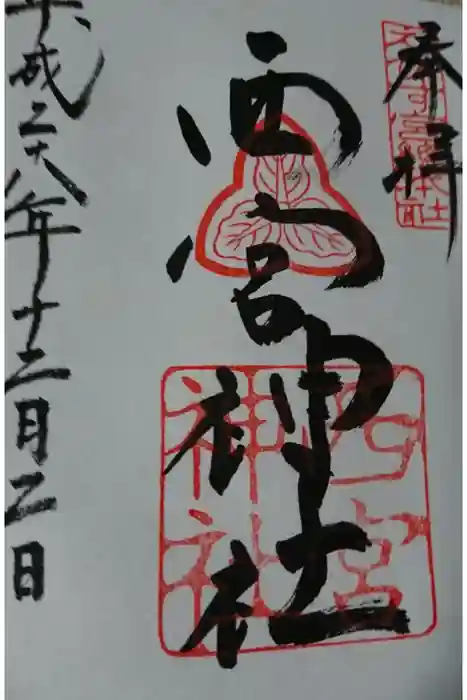 奉拝
西宮神社
西宮
神社
平成二十八年十二月二日